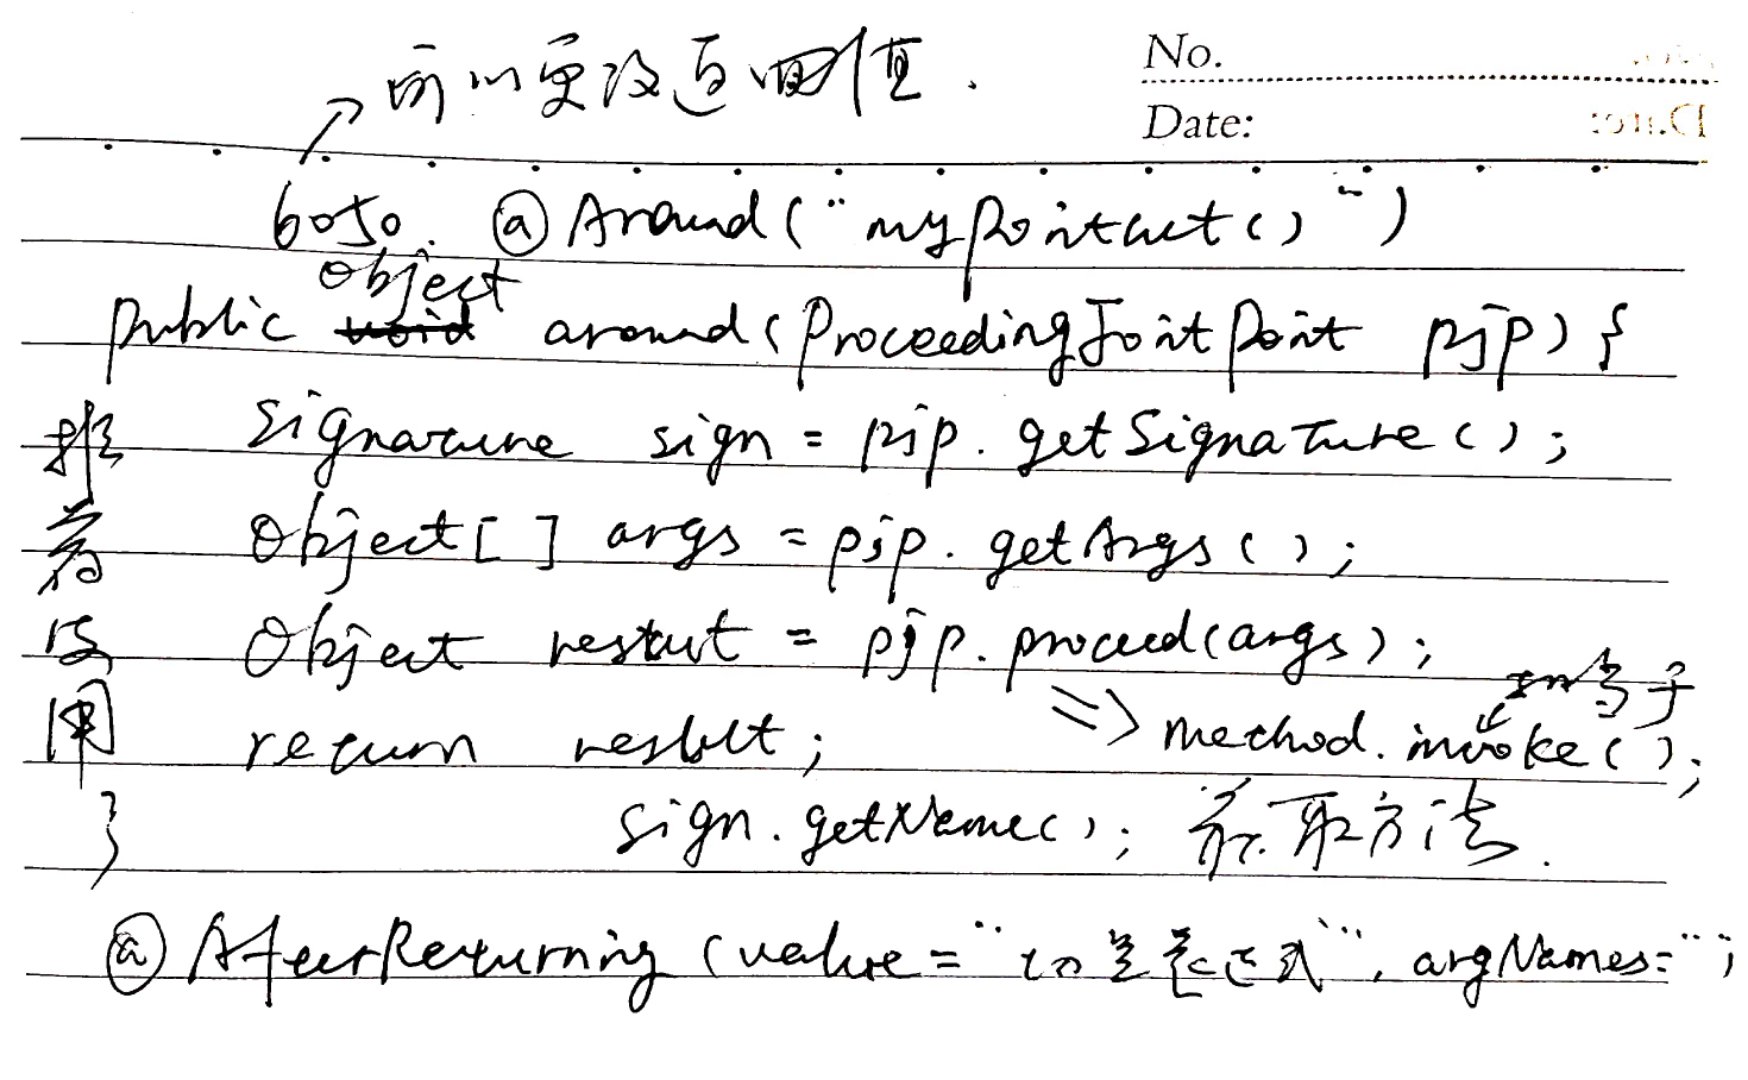 No.
可以更改返回值.
Date:
6050. @Around("myPointcut()")
Object
public void around(ProceedingJointPoint pjp) {
Signature sign = pjp.getSignature();
Object[] args = pjp.getArgs();
Object restut = pjp.proceed(args);
相当于
return result; => method.invoke();
} sign.getName(); 获取方法.
@AfterReturning (value="切点表达式", argNames="";